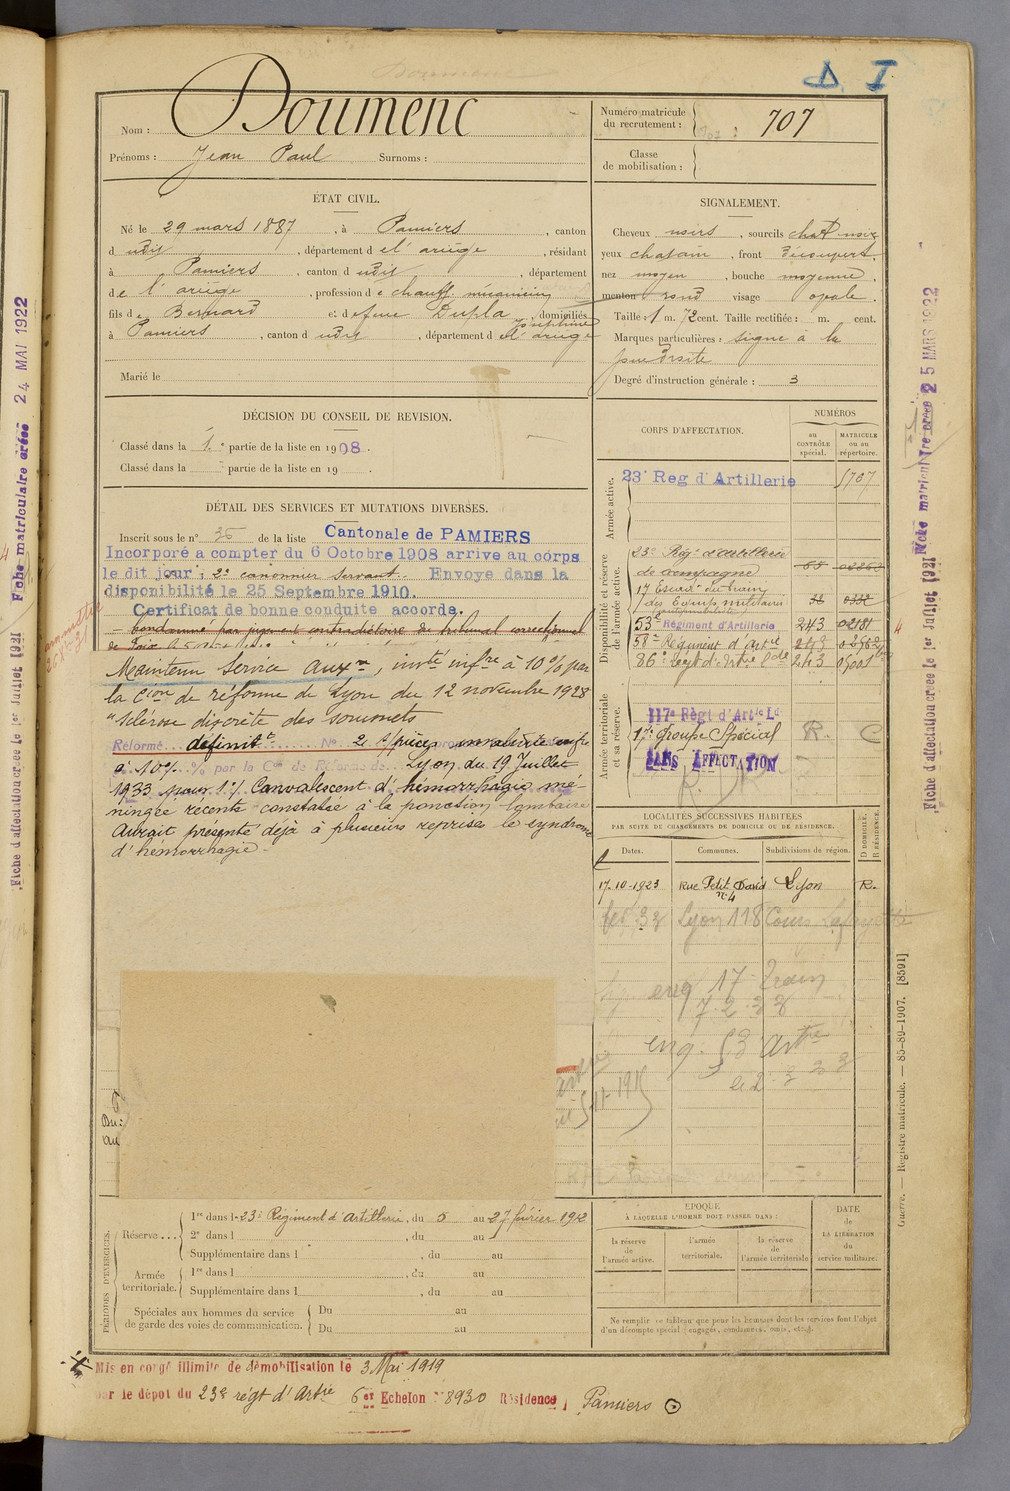 D. I
Doumenc
Nom : Doumenc
Prénoms : Jean Paul Surnoms :
Numéro matricule
du recrutement : 707
Classe
de mobilisation :
ÉTAT CIVIL.
Né le 29 mars 1887, à Pamiers, canton
d udit, département de l'ariège, résidant
à Pamiers, canton d udit, département
de l'ariège, profession de chauff. mécanicien
fils de Bernard et de feue Dupla Joséphine, domiciliés
à Pamiers, canton d udit, département de l'ariège
Marié le
SIGNALEMENT.
Cheveux noirs, sourcils chat noir
yeux chatain, front découvert,
nez moyen, bouche moyenne,
menton rond visage ovale.
Taille : 1 m. 72 cent. Taille rectifiée : m. cent.
Marques particulières : signe à la
joue droite
Degré d'instruction générale : 3
DÉCISION DU CONSEIL DE REVISION.
Classé dans la 1e partie de la liste en 1908.
Classé dans la partie de la liste en 19 .
DÉTAIL DES SERVICES ET MUTATIONS DIVERSES.
Inscrit sous le n° 36 de la liste Cantonale de PAMIERS
Incorporé a compter du 6 Octobre 1908 arrive au corps
le dit jour ; 2e canonnier servant. Envoye dans la
disponibilité le 25 Septembre 1910.
Certificat de bonne conduite accorde.
condamné par jugement contradictoire du tribunal correctionnel
de Foix
Maintenu Service Auxre, invté infre à 10 % par
la Cion de réforme de Lyon du 12 novembre 1928
"Sclérose discrète des sommets
Réformé définitt N° 2 s/pièces invalidité infre
à 10% % par la Con de Réforme de Lyon du 19 Juillet
1933 pour 1°/ Convalescent d'hémorrhagie mé-
ningée récente constatée à la ponction lombaire
Aurait présenté déjà à plusieurs reprises le syndrome
d'hémorrhagie.
CORPS D'AFFECTATION.
NUMÉROS
au
CONTRÔLE
spécial.
MATRICULE
ou au
répertoire.
Armée active.
23e Reg d'Artillerie 5707
Disponibilité et réserve
de l'armée active.
23e Régt d'artillerie
de campagne 68
17 Escon du train
des Equip. militaires
53e Régiment d'Artillerie 243 02181
58e Régiment d'Artie 243
86e régt d'Artie 243 05001
Armée territoriale
et sa réserve.
117e Règt d'Artie Lde
17e Groupe Spécial R. C
SANS AFFECTATION
LOCALITÉS SUCCESSIVES HABITÉES
PAR SUITE DE CHANGEMENTS DE DOMICILE OU DE RÉSIDENCE.
Dates. Communes. Subdivisions de région. D DOMICILE. R RÉSIDENCE.
17-10-1923 Rue Petit David Lyon R.
n° 4
Lyon 118 Cours Lafayette
17 Train
53 Artie
PÉRIODES D'EXERCICES.
Réserve...
1re dans l 23e Régiment d'Artillerie, du 5 au 27 février 1912
2e dans l , du au
Supplémentaire dans l , du au
Armée
territoriale.
1re dans l , du au
Supplémentaire dans l , du au
Spéciales aux hommes du service
de garde des voies de communication.
Du au
Du au
ÉPOQUE
À LAQUELLE L'HOMME DOIT PASSER DANS :
la réserve
de
l'armée active.
l'armée
territoriale.
la réserve
de
l'armée territoriale
DATE
de
LA LIBÉRATION
du
service militaire.
Ne remplir ce tableau que pour les hommes dont les services font l'objet
d'un décompte spécial : engagés, condamnés, omis, etc.
Mis en congé illimité de démobilisation le 3 Mai 1919
par le dépot du 23e régt d'Artie 6e Echelon N° 8930 Résidence, Pamiers
Fiche d'affectation créée le 1er Juillet 1921 Fiche matriculaire créée 24 MAI 1922
Fiche d'affectation créée le 1er Juillet 1921 Fiche matriculaire créée 25 MARS 1922
Guerre. — Registre matricule. — 85-89-1907. [8591]